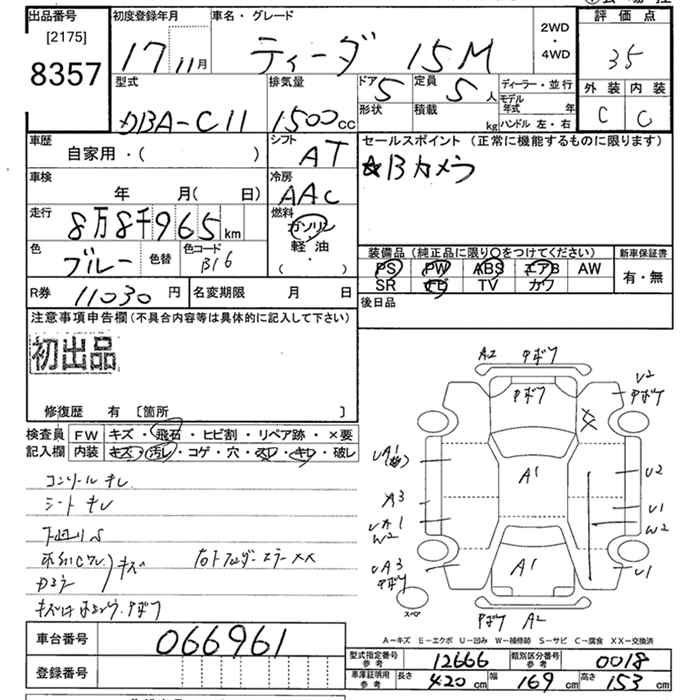 出品番号 初度登録年月 車名・グレード 2WD 評価点
[2175] 17 11月 ティーダ 15M ・4WD 35
8357
型式 排気量 ドア 5 定員 5人 ディーラー・並行 外装 内装
DBA-C11 1500cc 形状 積載 kg モデル年式 年 C C
ハンドル 左・右
車歴 シフト セールスポイント (正常に機能するものに限ります)
自家用・( ) AT ☆Bカメラ
車検 冷房
年 月( 日) AAC
走行 燃料
8万8千965km ガソリン
色 色替 色コード 軽油
ブルー B16 ・( )
装備品 (純正品に限り○をつけてください) 新車保証書
PS PW ABS エアB AW 有・無
SR TV カワ
R券 11030円 名変期限 月 日 後日品
注意事項申告欄 (不具合内容等は具体的に記入して下さい)
初出品
修復歴 有 〔箇所 〕
検査員 FW キズ・飛石・ヒビ割・リペア跡・×要
記入欄 内装 キズ・汚レ・コゲ・穴・スレ・キレ・破レ
シート キレ
A2
U2
A1
A1
U2
A3
U1
W2
W2
A1
U1
スペア
A2
A-キズ E-エクボ U-凹み W-補修跡 S-サビ C-腐食 XX-交換済
車台番号 066961
登録番号
型式指定番号 参考 12666 類別区分番号 参考 0018
車庫証明用 参考 長さ 420cm 幅 169cm 高さ 153cm